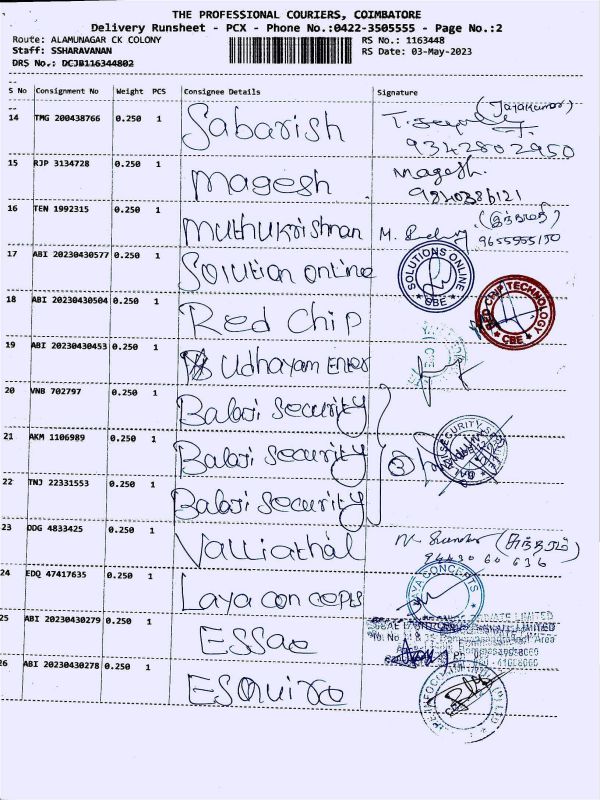 THE PROFESSIONAL COURIERS, COIMBATORE
Delivery Runsheet - PCX - Phone No.:0422-3505555 - Page No.:2
Route: ALAMUNAGAR CK COLONY RS No.: 1163448
Staff: SSHARAVANAN RS Date: 03-May-2023
DRS No.: DCJB116344802
S No Consignment No Weight PCS Consignee Details Signature
(Jayakumar)
14 TMG 200438766 0.250 1 Sabarish
9342802950
15 RJP 3134728 0.250 1 Magesh Magesh.
16 TEN 1992315 0.250 1 Muthukrishnan M.
17 ABI 20230430577 0.250 1 Solution online SOLUTIONS ONLINE CBE
18 ABI 20230430504 0.250 1 Red Chip RED CHIP TECHNOLOGY CBE
19 ABI 20230430453 0.250 1 Udhayam Enter
20 VNB 702797 0.250 1 Balaji Security
21 AKM 1106989 0.250 1 Balaji Security 3
22 TNJ 22331553 0.250 1 Balaji Security
23 DDG 4833425 0.250 1 Valliathal
94430 60 636
24 EDQ 47417635 0.250 1 Laya concepts LAYA CONCEPTS
25 ABI 20230430279 0.250 1 ESSae
26 ABI 20230430278 0.250 1 ESQuire